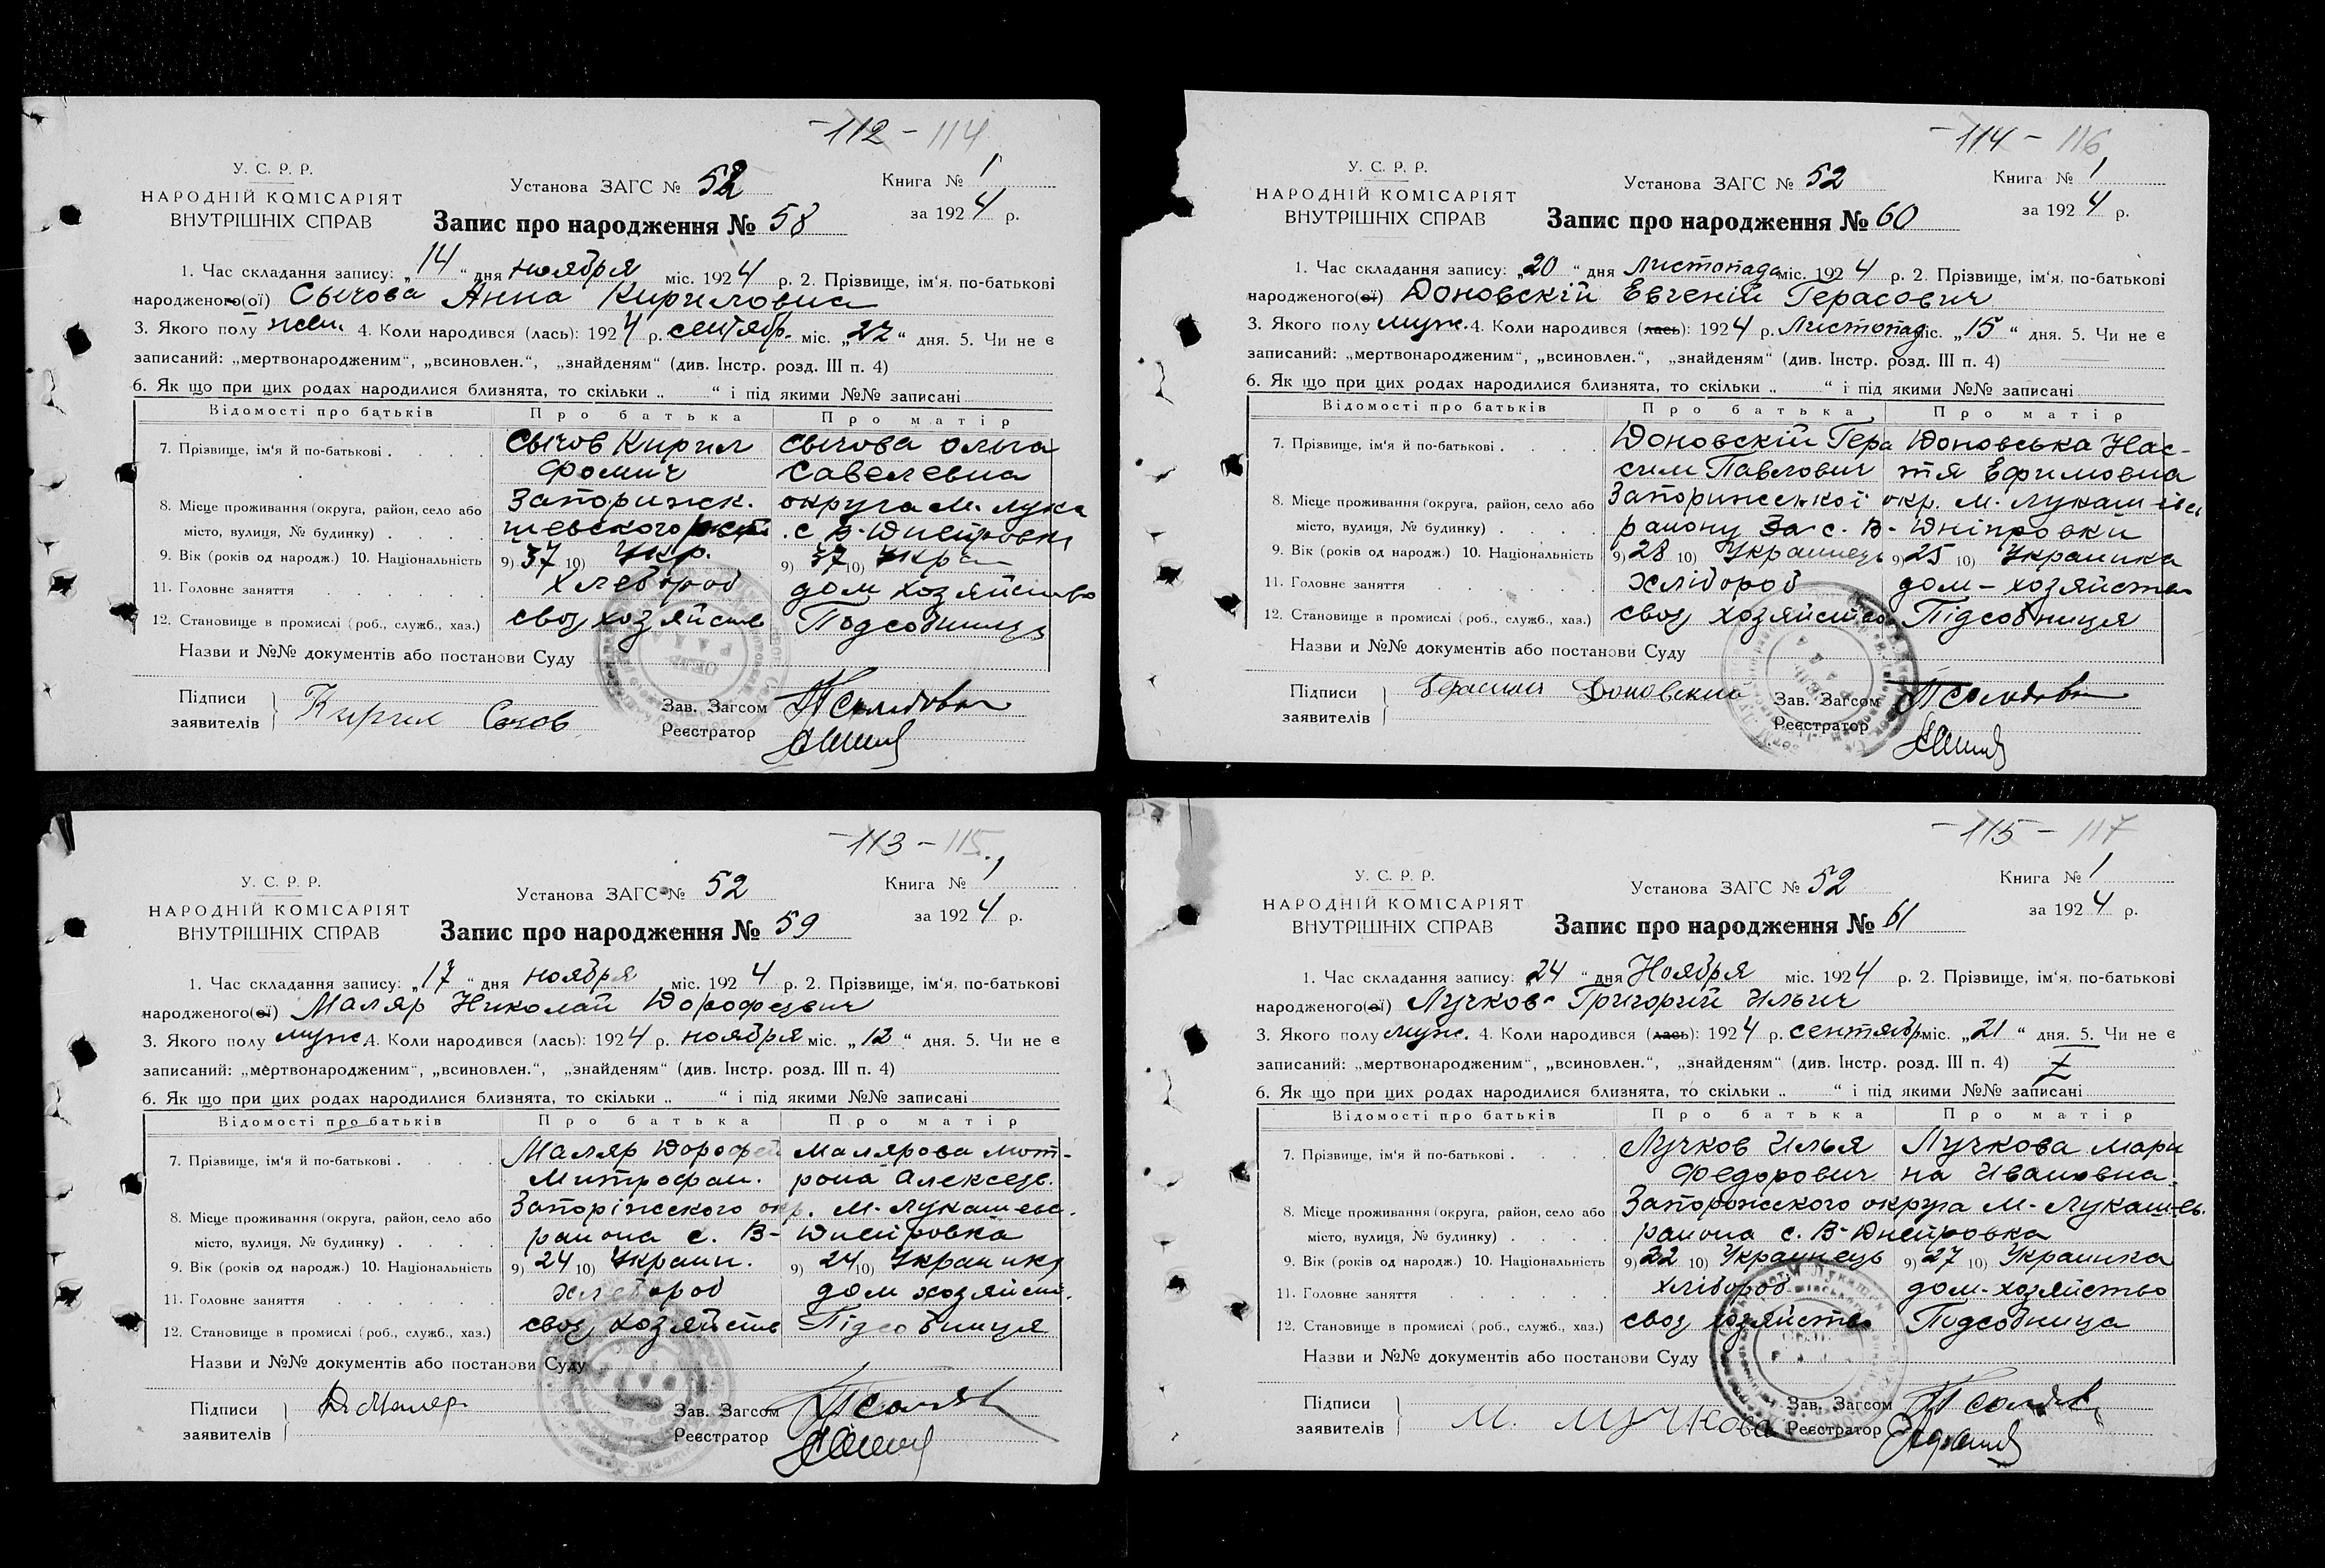 -112- 114
У. С. Р. Р.
НАРОДНІЙ КОМІСАРІЯТ
ВНУТРІШНІХ СПРАВ
Установа ЗАГС № 52
Книга № 1
за 1924 р.
Запис про народження № 58
1. Час складання запису: „14“ дня ноября міс. 1924 р. 2. Прізвище, ім‘я, по-батькові
народженого(ої) Сычова Анна Кириловна
3. Якого полу жен. 4. Коли народився (лась): 1924 р. сентябр. міс. „27“ дня. 5. Чи не є
записаний: „мертвонародженим“, „всиновлен.“, „знайденям“ (див. Інстр. розд. III п. 4)
6. Як що при цих родах народилися близнята, то скільки „ “ і під якими №№ записані
Відомості про батьків Про батька Про матір
7. Прізвище, ім‘я й по-батькові . Сычов Кирил Сычова Ольга
Фомич Савелевна
8. Місце проживання (округа, район, село або Запорижск. округа М. Лука
місто, вулиця, № будинку) шевского с В-Днепровки
9. Вік (років од народж.) 10. Національність 9) 37 10) Укр. 9) 37 10) Укра
11. Головне заняття Хлебороб дом хозяйство
12. Становище в промислі (роб., служб., хаз.) своу хозяйств Подсобниця
Назви и №№ документів або постанови Суду
Підписи
заявителів
Кирил Сычов
Зав. Загсом
Реєстратор
-113- 115
У. С. Р. Р.
НАРОДНІЙ КОМІСАРІЯТ
ВНУТРІШНІХ СПРАВ
Установа ЗАГС № 52
Книга № 1
за 1924 р.
Запис про народження № 59
1. Час складання запису: „17“ дня ноября міс. 1924 р. 2. Прізвище, ім‘я, по-батькові
народженого(ої) Маляр Николай Дорофеевич
3. Якого полу муж. 4. Коли народився (лась): 1924 р. ноября міс. „12“ дня. 5. Чи не є
записаний: „мертвонародженим“, „всиновлен.“, „знайденям“ (див. Інстр. розд. III п. 4)
6. Як що при цих родах народилися близнята, то скільки „ “ і під якими №№ записані
Відомості про батьків Про батька Про матір
7. Прізвище, ім‘я й по-батькові . Маляр Дорофей Малярова Мот-
Митрофан. рона Алексеев.
8. Місце проживання (округа, район, село або Запоріжского окр. М-Лукашевс.
місто, вулиця, № будинку) района с. В- Днепровка
9. Вік (років од народж.) 10. Національність 9) 24 10) Украин. 9) 24 10) Украинка
11. Головне заняття хлебороб дом хозяйств.
12. Становище в промислі (роб., служб., хаз.) своу хозяйств Підсобниця
Назви и №№ документів або постанови Суду
Підписи
заявителів
Д. Маляр
Зав. Загсом
Реєстратор
-114- 116
У. С. Р. Р.
НАРОДНІЙ КОМІСАРІЯТ
ВНУТРІШНІХ СПРАВ
Установа ЗАГС № 52
Книга № 1
за 1924 р.
Запис про народження № 60
1. Час складання запису: „20“ дня Листопада міс. 1924 р. 2. Прізвище, ім‘я, по-батькові
народженого(ої) Доновскій Евгеній Герасович
3. Якого полу муж. 4. Коли народився (лась): 1924 р. Листопад міс. „15“ дня. 5. Чи не є
записаний: „мертвонародженим“, „всиновлен.“, „знайденям“ (див. Інстр. розд. III п. 4)
6. Як що при цих родах народилися близнята, то скільки „ “ і під якими №№ записані
Відомості про батьків Про батька Про матір
7. Прізвище, ім‘я й по-батькові . Доновскій Гера Доновська Нас-
сим Павлович тя Ефимовна
8. Місце проживання (округа, район, село або Запорижської окр. М-Лукашівсь
місто, вулиця, № будинку) району с. В- Дніпровки
9. Вік (років од народж.) 10. Національність 9) 28 10) Украинець 9) 25 10) Украинка
11. Головне заняття хлібороб дом-хозяйство
12. Становище в промислі (роб., служб., хаз.) своу хозяйство Підсобниця
Назви и №№ документів або постанови Суду
Підписи
заявителів
Герасим Доновский
Зав. Загсом
Реєстратор
-115- 117
У. С. Р. Р.
НАРОДНІЙ КОМІСАРІЯТ
ВНУТРІШНІХ СПРАВ
Установа ЗАГС № 52
Книга № 1
за 1924 р.
Запис про народження № 61
1. Час складання запису: „24“ дня Ноября міс. 1924 р. 2. Прізвище, ім‘я, по-батькові
народженого(ої) Лучков Григорий Ильич
3. Якого полу муж. 4. Коли народився (лась): 1924 р. сентябр міс. „21“ дня. 5. Чи не є
записаний: „мертвонародженим“, „всиновлен.“, „знайденям“ (див. Інстр. розд. III п. 4)
6. Як що при цих родах народилися близнята, то скільки „ “ і під якими №№ записані
Відомості про батьків Про батька Про матір
7. Прізвище, ім‘я й по-батькові . Лучков Илья Лучкова Мари
Федорович на Ивановна
8. Місце проживання (округа, район, село або Запорожского округа М-Лукашев.
місто, вулиця, № будинку) района с. В-Днепровка
9. Вік (років од народж.) 10. Національність 9) 22 10) Украинець 9) 27 10) Украинка
11. Головне заняття хлібороб дом-хозяйство
12. Становище в промислі (роб., служб., хаз.) своу хозяйство Подсобница
Назви и №№ документів або постанови Суду
Підписи
заявителів
М. Лучкова
Зав. Загсом
Реєстратор